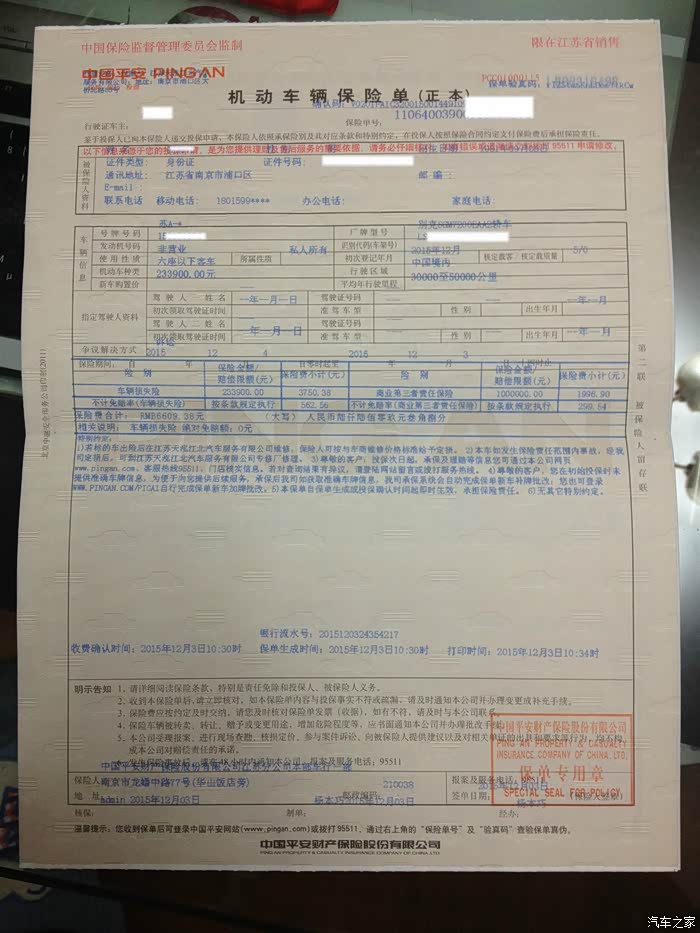 中国保险监督管理委员会监制
限在江苏省销售
中国平安 PING AN
保单验真码:
机动车辆保险单(正本)
保险单号:
行驶证车主:
基于投保人已向本保险人递交投保申请,本保险人依照承保险别及其对应条款和特别约定,在投保人按照保险合同约定支付保险费后承担保险责任。
被保险人资料
证件类型: 身份证 证件号码:
通讯地址: 江苏省南京市浦口区 邮 编:
E-mail:
联系电话 移动电话: 1801599**** 办公电话: 家庭电话:
车辆信息
号牌号码 苏A-* 厂牌型号
发动机号码 识别代码(车架号)
使用性质 非营业 所属性质 私人所有 初次登记年月 2015年12月 核定载客/核定载质量 5/0
机动车种类 六座以下客车 行驶区域 中国境内
新车购置价 233900.00元 平均年行驶里程 30000至50000公里
指定驾驶人资料
驾驶人一姓名 驾驶证号码
初次领取驾驶证时间 --年--月--日 准驾车型 性别 出生年月 --年--月
驾驶人二姓名 驾驶证号码
初次领取驾驶证时间 --年--月--日 准驾车型 性别 出生年月 --年--月
争议解决方式 诉讼
保险期间: 2015 年 12 月 4 日零时起至 2016 年 12 月 3 日
险 别 保险金额/赔偿限额(元) 保险费小计(元) 险 别 保险金额/赔偿限额(元) 保险费小计(元)
车辆损失险 233900.00 3750.38 商业第三者责任保险 1000000.00 1996.90
不计免赔率(车辆损失险) 按条款规定执行 562.56 不计免赔率(商业第三者责任保险) 按条款规定执行 299.54
保险费合计: RMB6609.38元 (大写) 人民币陆仟陆佰零玖元叁角捌分
相关说明: 车辆损失险 绝对免赔额:0元
特别约定:
1)若标的车出险后在江苏天泓江北汽车服务有限公司维修,保险人可按与车商维修价格标准给予定损。 2)本车如发生保险责任范围内事故,经我
司定损后,可到江苏天泓江北汽车服务有限公司专修厂修理。 3)尊敬的客户:投保次日起,承保及理赔等信息您可通过本公司网页
www.pingan.com、客服热线95511、门店核实信息。若对查询结果有异议,请登陆网站留言或拨打服务热线。 4)尊敬的客户,您在初始投保时未
提供准确车牌信息,为便于向您提供后续服务,承保后我司如获取准确车牌信息,我司承保系统会自动完成保单新车补牌批改;您也可登录
WWW.PINGAN.COM/PICAI自行完成保单新车牌批改。5)本保单自保单生成或投保确认时间起即时生效,承担保险责任。 6)无其它特别约定。
第二联 被保险人留存联
银行流水号: 2015120324354217
收费确认时间: 2015年12月3日10:30时 保单生成时间: 2015年12月3日10:30时 打印时间: 2015年12月3日10:34时
明示告知
1. 请详细阅读保险条款,特别是责任免除和投保人、被保险人义务。
2. 收到本保险单后,请立即核对,如本保险单内容与投保事实不符或疏漏,请及时通知本公司并办理变更或补充手续。
3. 保险费应按约定及时交纳,请您及时核对保险单发票(收据),如有不符,请及时与本公司联系。
4. 保险车辆被转卖、转让、赠予或变更用途,增加危险程度等,应书面通知本公司并办理批改手续。
5. 本公司受理报案、进行现场查勘、核损定价、参与案件诉讼、向被保险人提供建议以及对相关单证的出具和要求等行为,均不构
成本公司对赔偿责任的承诺。
保险人
南京市龙蟠中路77号(华山饭店旁)
地 址: 邮政编码: 210038 报案及服务电话: 95511
admin 2015年12月03日 杨本巧2015年12月03日 签单日期: 2015年12月03日
核保: 制单: 经办: 杨本巧
中国平安财产保险股份有限公司
PING AN PROPERTY & CASUALTY
INSURANCE COMPANY OF CHINA, LTD.
保单专用章
SPECIAL SEAL FOR POLICY
温馨提示: 您收到保单后可登录中国平安网站(www.pingan.com)或拨打95511,通过右上角的“保险单号”及“验真码”查验保单真伪。
中国平安财产保险股份有限公司
PING AN PROPERTY & CASUALTY INSURANCE COMPANY OF CHINA, LTD.
汽车之家